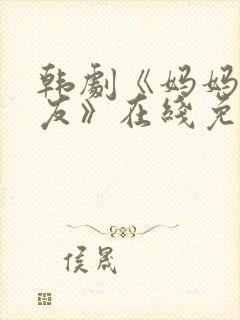 韩剧《妈妈
友》在线免
侯晟